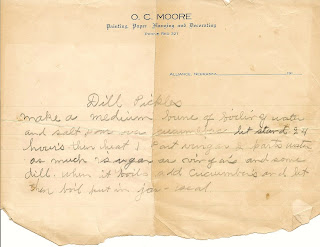 O. C. MOORE
Painting, Paper Hanging and Decorating
PHONE RED 321
ALLIANCE, NEBRASKA 19
Dill Pickles
make a medium brine of boiling water
and salt pour over cucumbers let stand 24
hours then heat 1 part vinegar 2 parts water
as much sugar as vinegar and some
dill. when it boils add cucumbers and let
them boil put in jar - seal